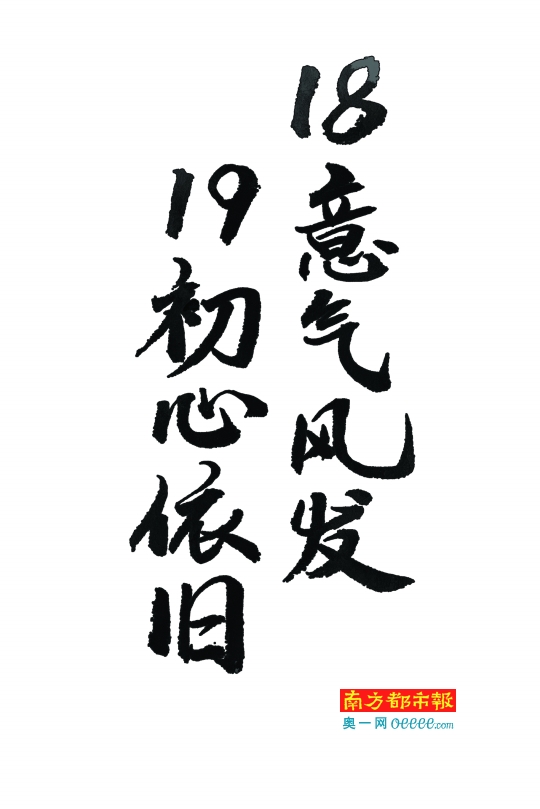 18意气风发
19初心依旧
南方都市報
奥一网 oeeee.com